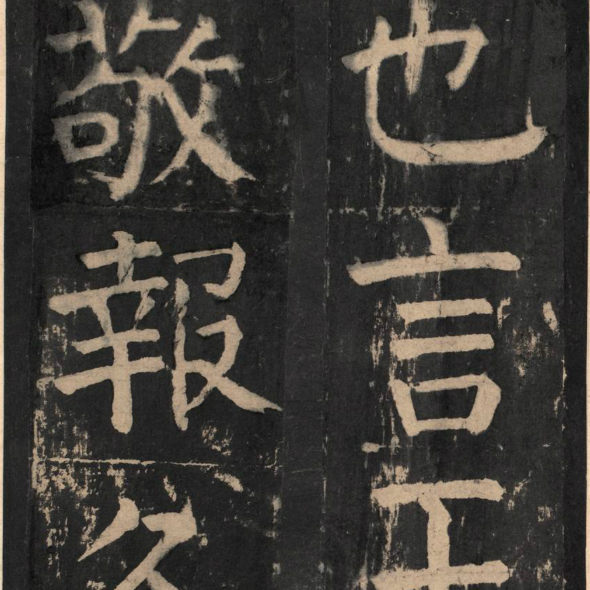 也言
敬報